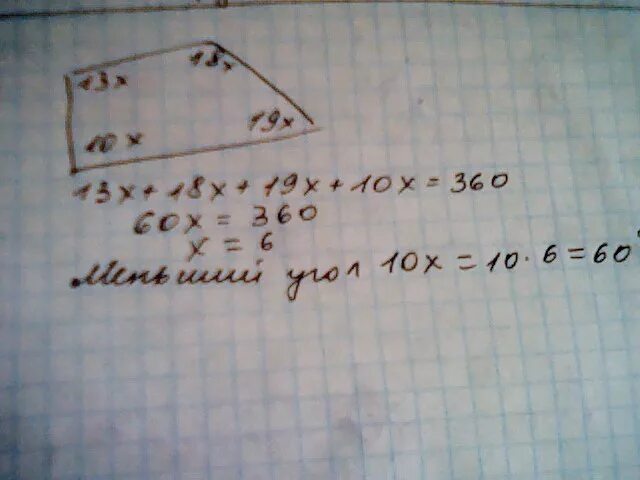 18x
13x
19x
10x
13x + 18x + 19x + 10x = 360
60x = 360
x = 6
Меньший угол 10x = 10 · 6 = 60°